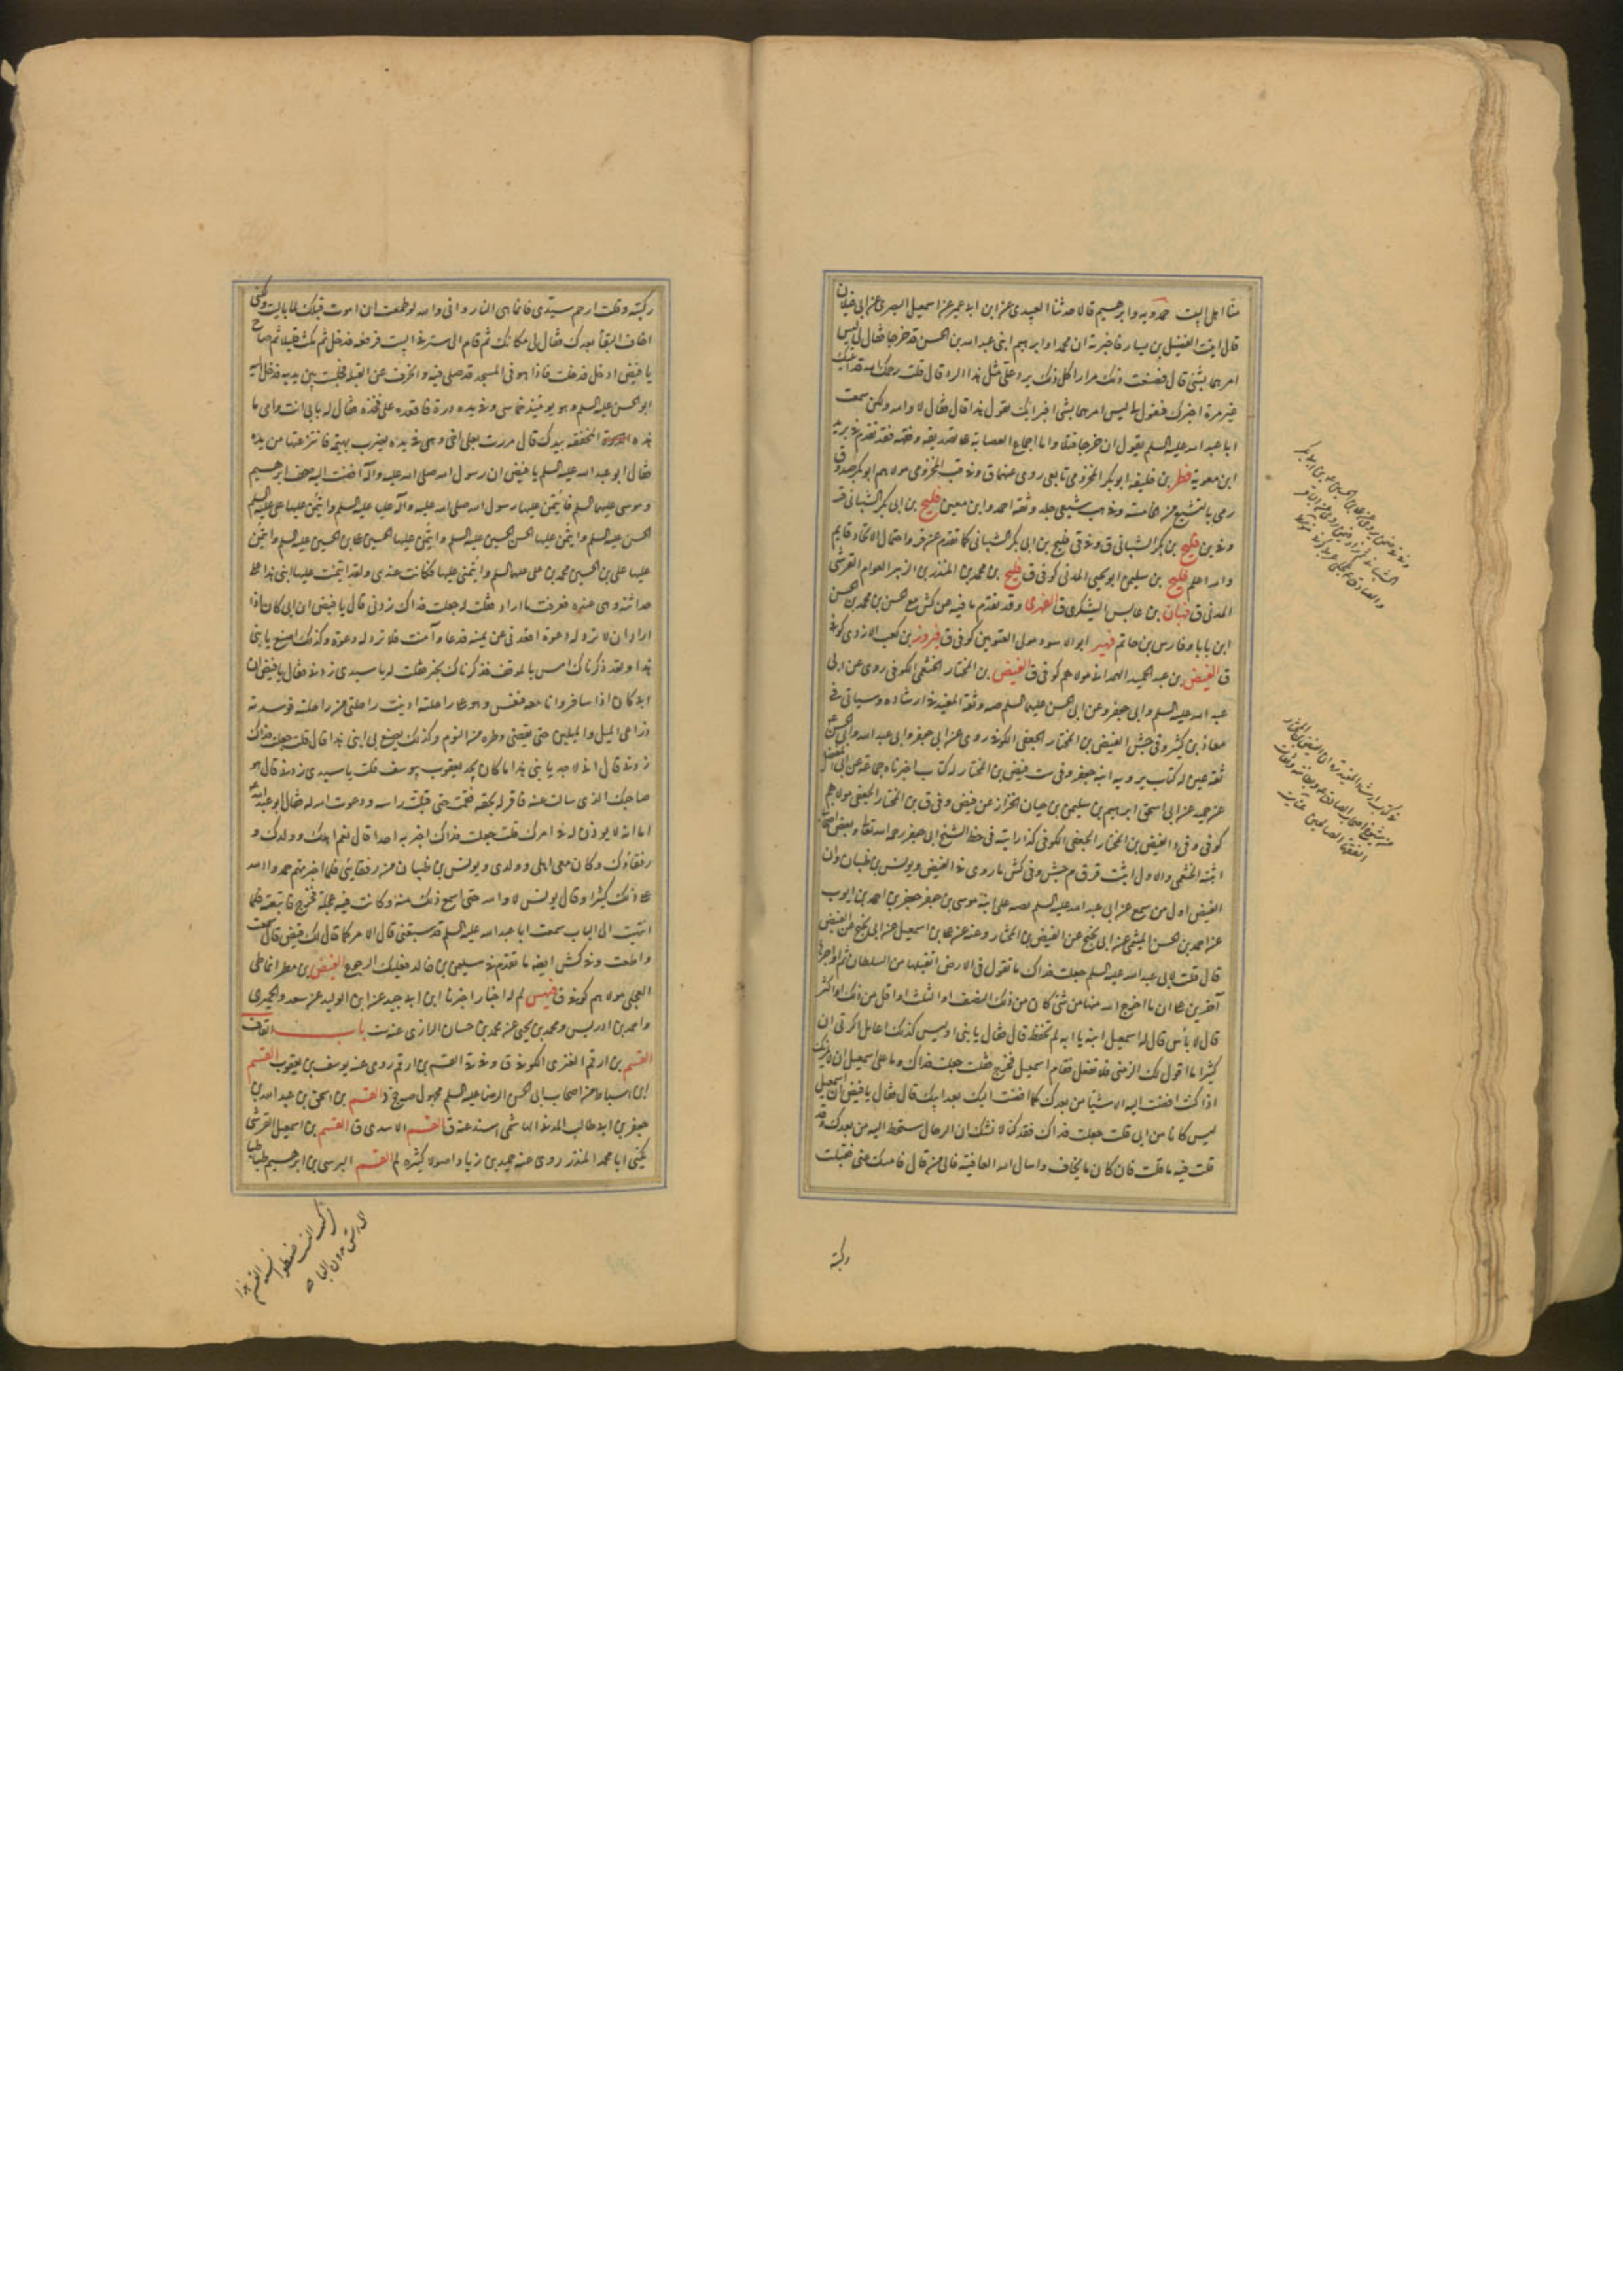 منا اهل البيت حمدويه وابرهيم قالا حدثنا العبيدى عن ابن ابى عمير عن اسمعيل البصرى عن ابى غيلان
قال اتيت الفضيل بن يسار فاخبرته ان محمدا وابرهيم ابنى عبد الله بن الحسن قد خرجا فقال لى ليس
امرهما بشئ قال فصنعت ذلك مرارا كل ذلك يرد على مثل هذا الرد قال قلت رحمك الله قد اتيتك
غير مرة اخبرك فتقول ليس امرهما بشئ افبرايك تقول هذا قال فقال لا والله ولكن سمعت
ابا عبد الله عليه السلم يقول ان خرجا قتلا واما اجماع العصابة على تصديقه وفقهه فقد تقدم فى بريد
ابن معوية فطر بن خليفه ابو بكر المخزومى تابعى روى عنهما ق وفى قب المخزومى مولاهم ابو بكر صدوق
رمى بالتشيع من الخامسه وفى هب شيعى جلد وثقه احمد وابن معين فليح بن ابى بكر الشيبانى قر
وفى ين فليح بن بكر الشيبانى ق وفى قى فليح بن ابى بكر الشيبانى كما تقدم عن قر واحتمال الاتحاد قايم
والله اعلم فليح بن سليمن ابو يحيى المدنى كوفى ق فليح بن محمد بن المنذر بن الزبير العوام القرشى
المدنى ق فنان بن عابس اليشكرى ق الفهرى وقد تقدم ما فيه عن كش مع حسن بن محمد بن الحسن
ابن بابا وفارس بن حاتم فهير ابو الاسود مولى العتويين كوفى ق فيروز بن كعب الازدى كوفى
ق الفيض بن عبد الحميد الهمدانى مولاهم كوفى ق الفيض بن المختار الخثعمى الكوفى روى عن ابى
عبد الله عليه السلم وابى جعفر وعن ابى الحسن عليهم السلم صه وثقه المفيد فى ارشاده وسياتى فى
معاذ بن كثير وفى جش الفيض بن المختار الجعفى الكوفى روى عن ابى جعفر وابى عبد الله وابى الحسن
ثقه عين له كتاب يرويه ابنه جعفر وفى ست فيض بن المختار له كتاب اخبرنا به جماعة عن ابى المفضل
عن حميد عن ابى اسحق ابرهيم بن سليمن بن حيان الخزاز عن فيض وفى ق بن المختار الجعفى مولاهم
كوفى وفى د الفيض بن المختار الجعفى الكوفى كذا رايته فى خط الشيخ ابى جعفر رحمه الله تعالى وبعض اصحابنا
اثبته الخثعمى والاول اثبت قر ق م جش وفى كش ما روى فى الفيض ويونس بن ظبيان وان
الفيض اول من سمع عن ابى عبد الله عليه السلم نصه على ابنه موسى بن جعفر جعفر بن احمد بن ايوب
عن احمد بن الحسن الميثمى عن ابى نجيح عن الفيض بن المختار وعنه عن على بن اسمعيل عن ابى نجيح عن الفيض
قال قلت لابى عبد الله عليه السلم جعلت فداك ما تقول فى الارض اتقبلها من السلطان ثم اواجرها
آخرين على ان ما اخرج الله منها من شئ كان من ذلك النصف او الثلث او اقل من ذلك او اكثر
قال لا بأس قال له اسمعيل ابنه يا ابه لم تحفظ قال فقال يا بنى او ليس كذلك اعامل اكرتى ان
كثيرا ما اقول لك الزمنى فلا تفعل فقام اسمعيل فخرج فقلت جعلت فداك وما على اسمعيل ان لا يلزمك
اذا كنت افضت اليه الاشيا من بعدك كما افضت اليك بعد ابيك قال فقال يا فيض ان اسمعيل
ليس كانا من ابى قلت جعلت فداك فقد كنا لا نشك ان الرحال ستحط اليه من بعدك وقد
قلت فيه ما قلت فان كان ما يخاف واسال الله العافية فالى من قال فامسك عنى فقبلت
ركبته
ركبته وقلت ارحم سيدى فانما هى النار وانى والله لو طمعت ان اموت قبلك لما باليت ولكنى
اخاف البقأ بعدك فقال لى مكانك ثم قام الى ستر فى البيت فرفعه فدخل ثم مكث قليلا ثم صاح
يا فيض ادخل فدخلت فاذا هو فى المسجد قد صلى فيه وانحرف عن القبلة فجلست بين يديه فدخل اليه
ابو الحسن عليه السلم وهو يومئذ خماسى وفى يده درة فاقعده على فخذه فقال له بابى انت وامى ما
هذه المخفقه بيدك قال مررت بعلى اخى وهى فى يده يضرب بهيمة فانتزعتها من يده
فقال ابو عبد الله عليه السلم يا فيض ان رسول الله صلى الله عليه وآله افضت اليه صحف ابرهيم
وموسى عليهما السلم فأئتمن عليها رسول الله صلى الله عليه وآله عليا عليه السلم وائتمن عليها على عليه السلم
الحسن عليه السلم وائتمن عليها الحسن الحسين عليه السلم وائتمن عليها الحسين على بن الحسين عليه السلم وائتمن
عليها على بن الحسين محمد بن على عليهما السلم وائتمننى عليها فكانت عندى ولقد ائتمنت عليها ابنى هذا على
حداثته وهى عنده فعرفت ما اراد فقلت له جعلت فداك زدنى قال يا فيض ان ابى كان اذا
اراد ان لا ترد له دعوة اقعدنى عن يمينه فدعا وآمنت فلا ترد له دعوة وكذلك اصنع بابنى
هذا ولقد ذكرناك امس بالموقف فذكرناك بخير فقلت له يا سيدى زدنى فقال يا فيض ان
ابى كان اذا سافر وانا معه فنعس وهو على راحلته ادنيت راحلتى من راحلته فوسدته
ذراعى الميل والميلين حتى يقضى وطره من النوم وكذلك يصنع بى ابنى هذا قال قلت جعلت فداك
زدنى قال انى لاجد بابنى هذا ما كان يجد يعقوب بيوسف قلت يا سيدى زدنى قال هو
صاحبك الذى سالت عنه فاقر له بحقه فقمت حتى قبلت راسه ودعوت الله له فقال ابو عبد الله
اما انه لم يوذن له فى امرك قلت جعلت فداك اخبر به احدا قال نعم اهلك وولدك و
رفقاؤك وكان معى اهلى وولدى ويونس بن ظبيان من رفقايئ فلما اخبرتهم حمدوا الله
على ذلك كثيرا وقال يونس لا والله حتى اسمع ذلك منه وكانت فيه عجلة فخرج فاتبعته فلما
انتهيت الى الباب سمعت ابا عبد الله عليه السلم قد سبقنى قال الامر كما قال لك فيض قال سمعت
واطعت وفى كش ايضه ما تقدم فى سليمن بن خالد فعليك الرجوع الفيض بن مطر انماطى
العجلى مولاهم كوفى ق فهيس لم له اخبار اخبرنا ابن ابى جيد عن ابن الوليد عن سعد والحميرى
واحمد بن ادريس ومحمد بن يحيى عن محمد بن حسان الرازى عنه ست باب القاف
القسم بن ارقم العنزى الكوفى ق وفى قى القسم بن ارقم روى عنه يوسف بن يعقوب القسم
ابن اسباط من اصحاب ابى الحسن الرضا عليه السلم مجهول صه وفى ضا القسم بن اسحق بن عبد الله بن
جعفر بن ابى طالب المدنى الهاشمى اسند عنه ق القسم الاسدى ق القسم بن اسمعيل القرشى
يكنى ابا محمد المنذر روى عنه حميد بن زياد اصولا كثيره لم القسم البرسى بن ابرهيم طباطبا